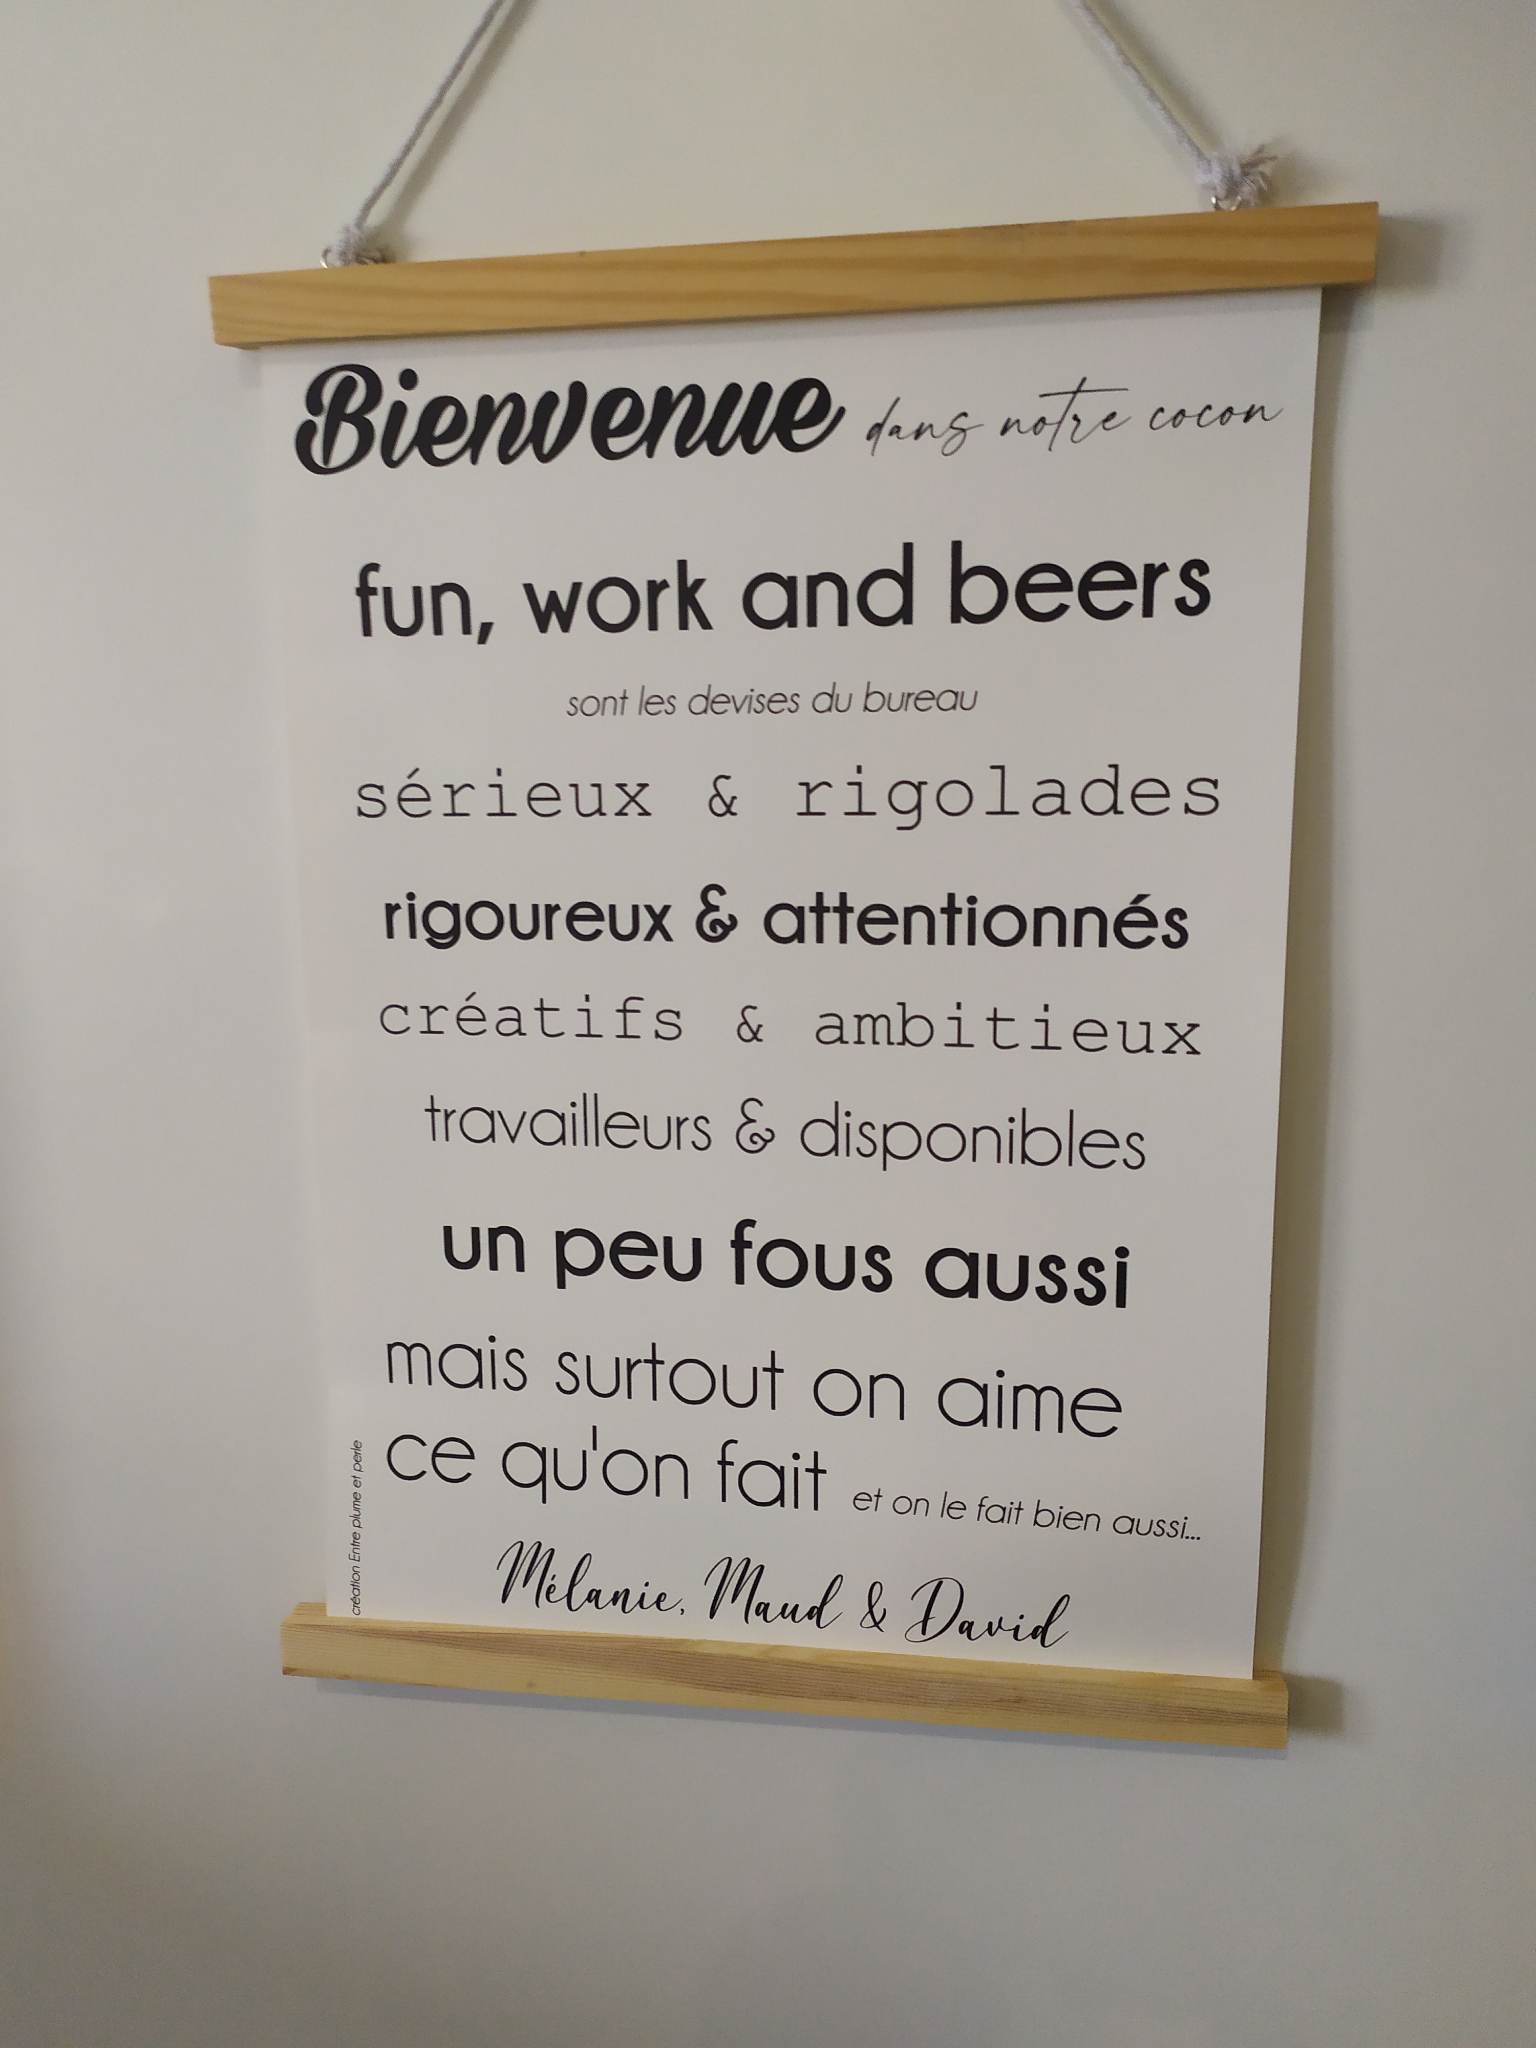 Bienvenue dans notre cocon
fun, work and beers
sont les devises du bureau
sérieux & rigolades
rigoureux & attentionnés
créatifs & ambitieux
travailleurs & disponibles
un peu fous aussi
mais surtout on aime
ce qu'on fait et on le fait bien aussi...
Mélanie, Maud & David
création Entre plume et perle